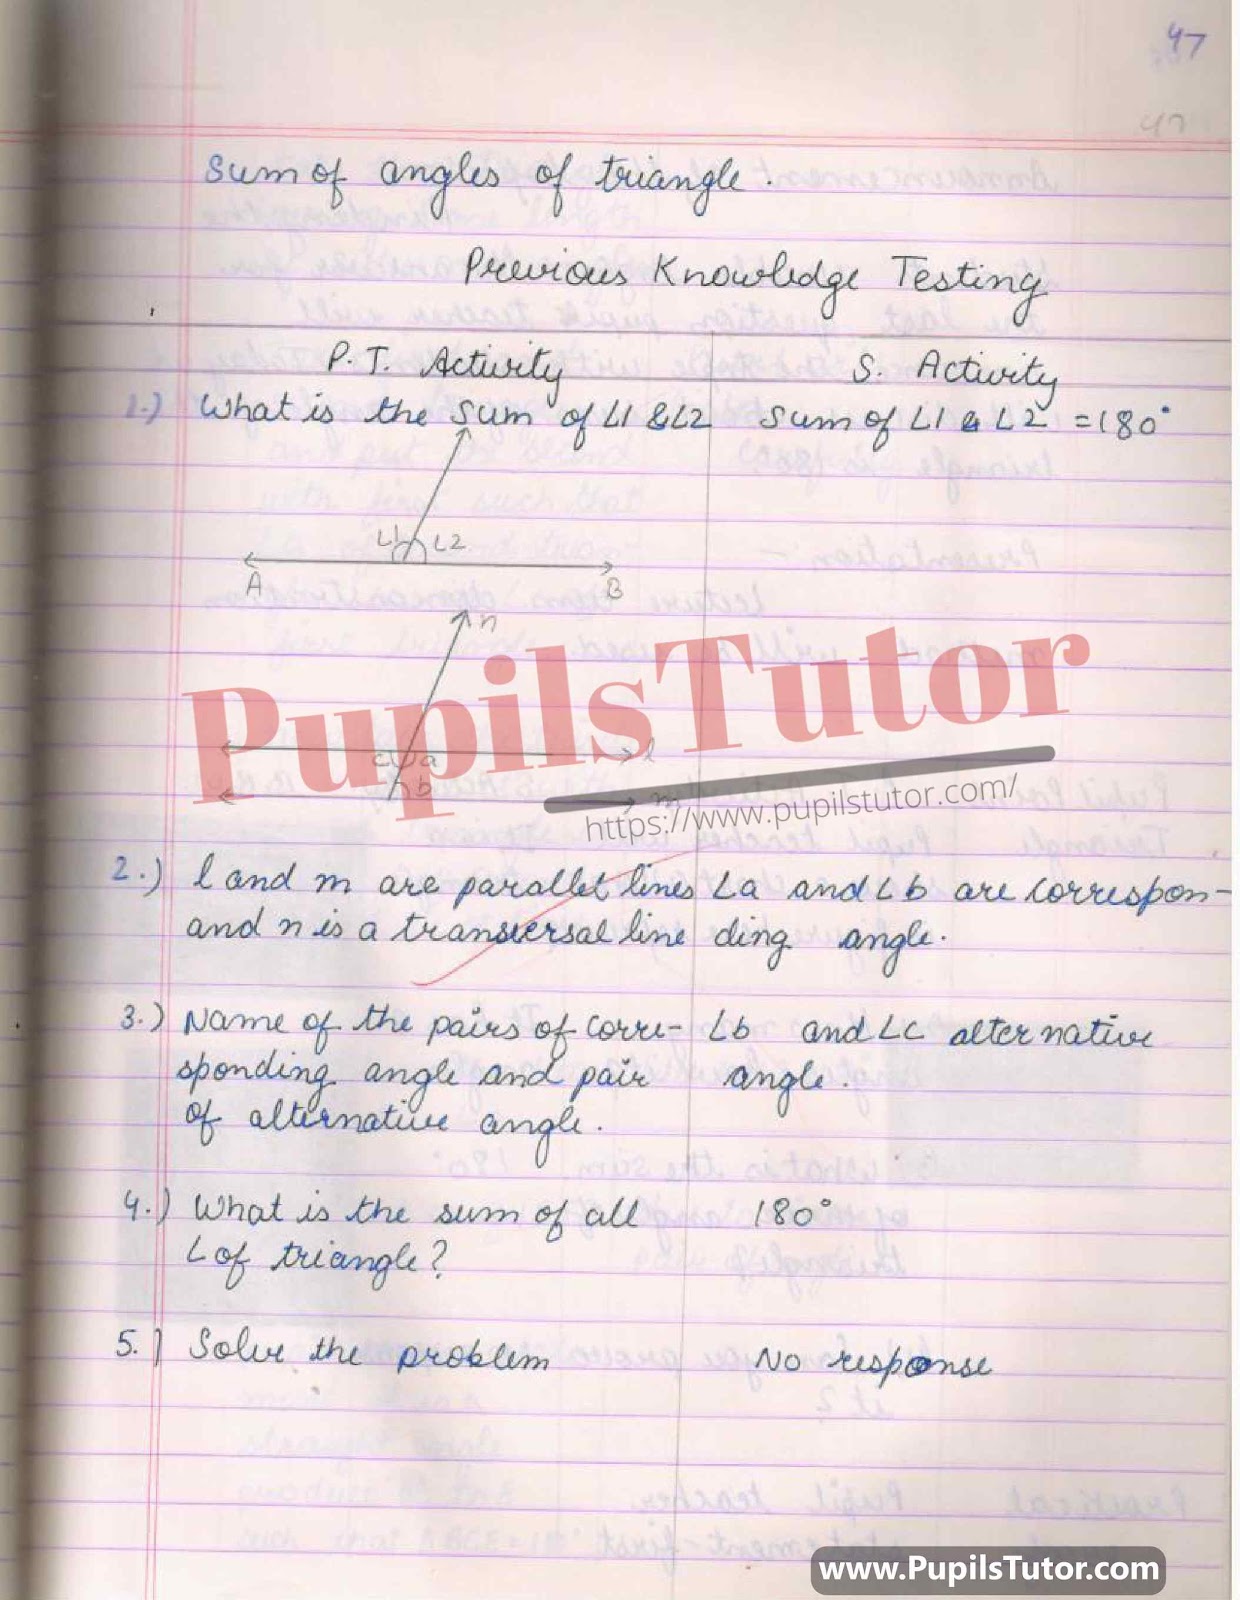 47
47
Sum of angles of triangle.
Previous Knowledge Testing
P.T. Activity
S. Activity
1.) What is the sum of ∠1 & ∠2
Sum of ∠1 & ∠2 = 180°
∠1 ∠2
A B
n
PupilsTutor
c a l
b m
https://www.pupilstutor.com/
2.) l and m are parallel lines
and n is a transversal line
∠a and ∠b are correspon-
ding angle.
3.) Name of the pairs of corre-
sponding angle and pair
of alternative angle.
∠b and ∠c alternative
angle.
4.) What is the sum of all
∠ of triangle?
180°
5.) Solve the problem
No response
www.PupilsTutor.com